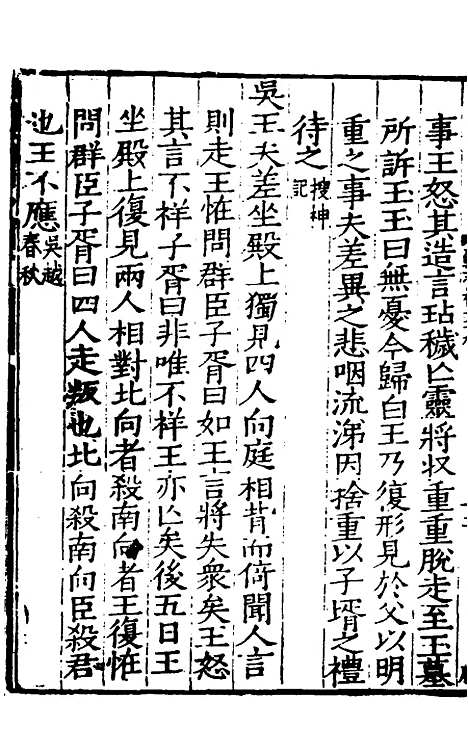 事王怒其造言玷穢亾靈將収重重脫走至玉墓
所訴玉玉曰無憂今歸白王乃復形見於父以明
重之事夫差異之悲咽流涕因捨重以子壻之禮
待之搜神記
吳王夫差坐殿上獨見四人向庭相背而倚聞人言
則走王恠問群臣子胥曰如王言將失衆矣王怒
其言不祥子胥曰非唯不祥王亦亾矣後五日王
坐殿上復見兩人相對北向者殺南向者王復恠
問群臣子胥曰四人走叛也北向殺南向臣殺君
也王不應吳越春秋